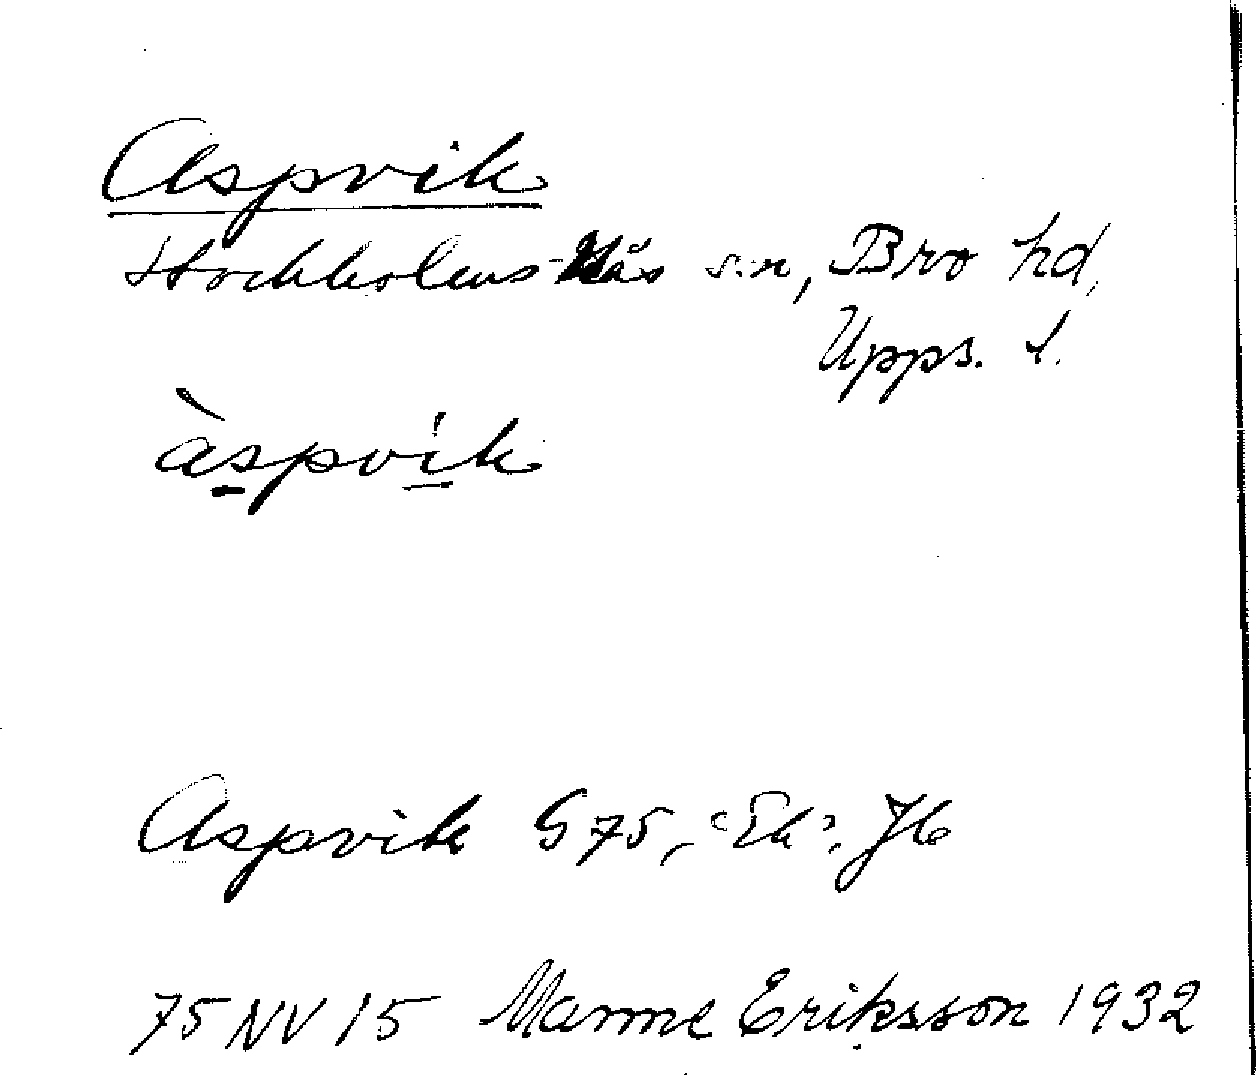 Aspvik
Stockholms-Näs s:n, Bro hd,
Upps. l.
àspvik
Aspvik G 75, "Ek". Jb
75 NV 15 Manne Eriksson 1932